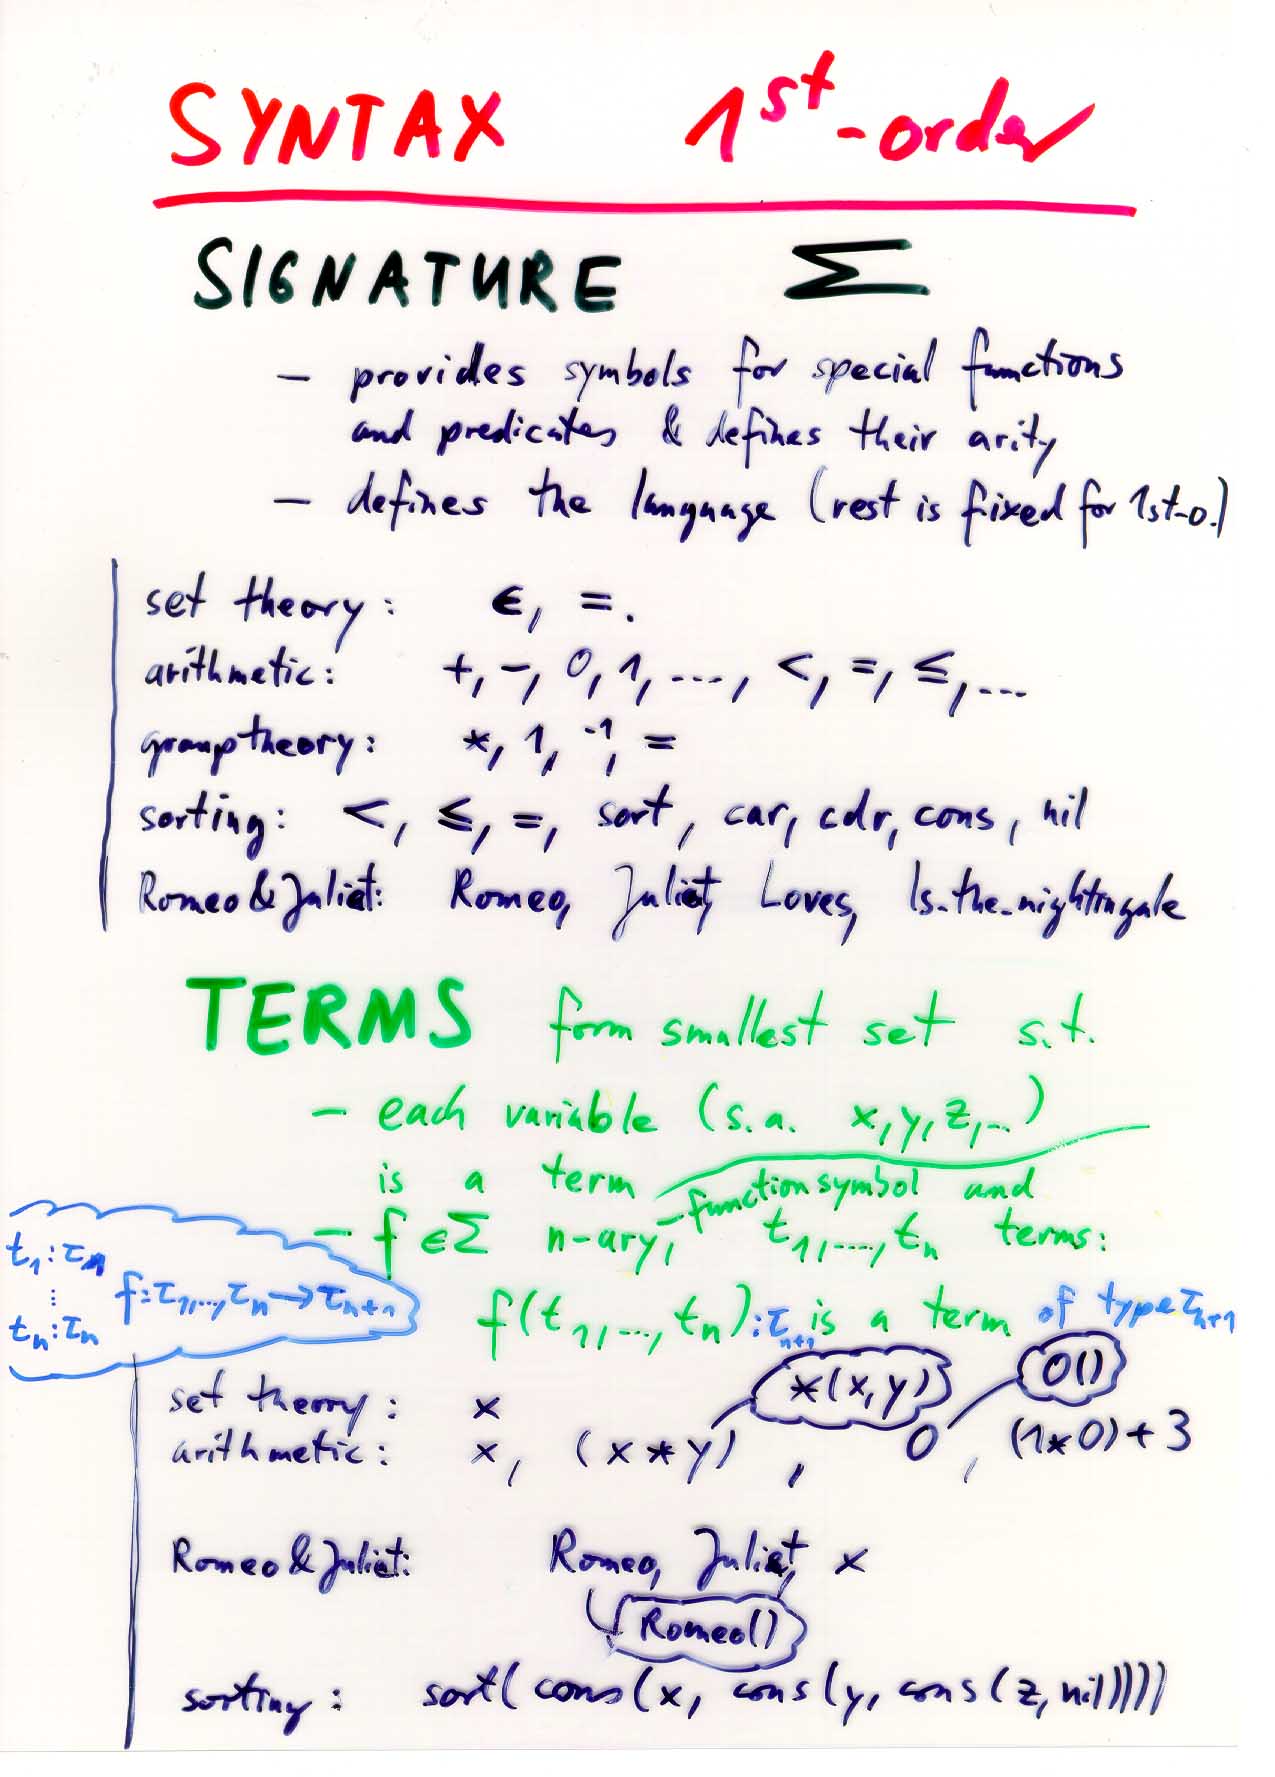 SYNTAX 1st-order
SIGNATURE Σ
– provides symbols for special functions
and predicates & defines their arity
– defines the language (rest is fixed for 1st-o.)
set theory: ∈, =.
arithmetic: +, -, 0, 1, ..., <, =, ≤, ...
grouptheory: *, 1, ⁻¹, =
sorting: <, ≤, =, sort, car, cdr, cons, nil
Romeo & Juliet: Romeo, Juliet, Loves, Is-the-nightingale
TERMS form smallest set s.t.
– each variable (s.a. x, y, z, ..)
is a term
function symbol and
– f ∈ Σ n-ary, t₁, ..., tₙ terms:
t₁ : τ₁
⋮
tₙ : τₙ
f : τ₁, .., τₙ → τₙ₊₁
f(t₁, ..., tₙ) : τₙ₊₁ is a term of type τₙ₊₁
*(x, y) 0()
set theory: x
arithmetic: x, (x * y), 0, (1*0) + 3
Romeo & Juliet: Romeo, Juliet, x
Romeo()
sorting: sort(cons(x, cons(y, cons(z, nil))))